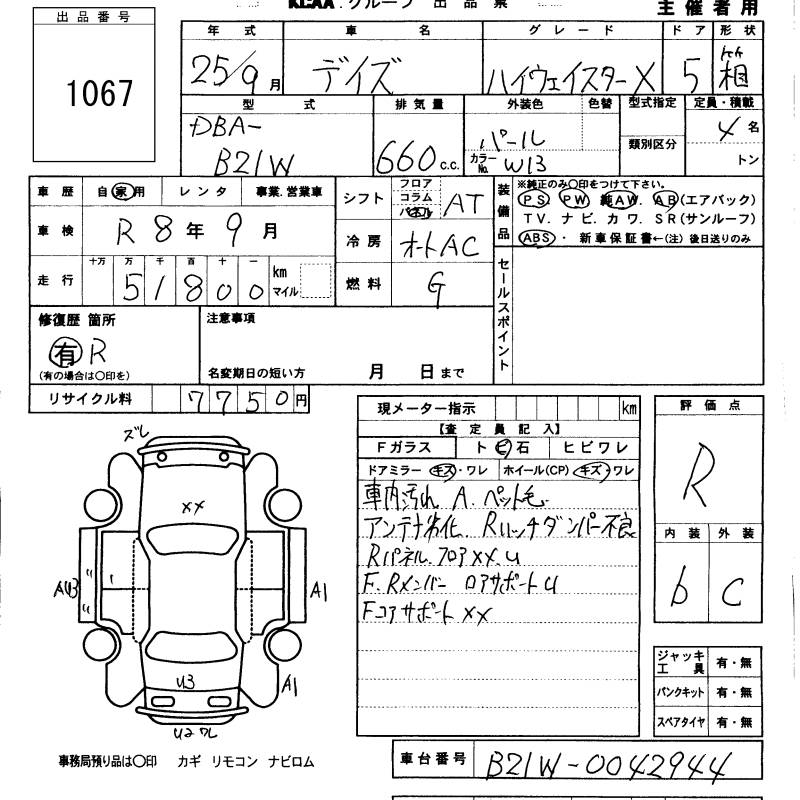 KCAA.グループ 出品票
主催者用
出品番号
1067
年式 車名 グレード ドア 形状
25/9月 デイズ ハイウェイスターX 5 箱
型式 排気量 外装色 色替 型式指定 定員・積載
DBA-
B21W 660c.c. パール
カラーNo. W13 類別区分 4名
トン
車歴 自家用 レンタ 事業.営業車
車検 R8年9月
走行 十万 万 千 百 十 一
51800 km
マイル
シフト フロア
コラム
パネル AT
冷房 オートAC
燃料 G
装備品 ※純正のみ〇印をつけて下さい。
PS. PW. 純AW. AB(エアバック)
TV. ナビ. カワ. SR(サンルーフ)
ABS・ 新車保証書←(注) 後日送りのみ
セールスポイント
修復歴 箇所
有 R
(有の場合は〇印を)
注意事項
名変期日の短い方 月 日まで
リサイクル料 7750円
現メーター指示 km
【査定員記入】
Fガラス ト ビ 石 ヒビワレ
ドアミラー キズ・ワレ ホイール(CP) キズ・ワレ
車内汚れ A. ペット毛
アンテナ劣化. Rハッチダンパー不良
Rパネル.フロアxx.u
F.Rメンバー ロアサポートu
Fコアサポート xx
評価点
R
内装 外装
b C
ズレ
xx
AU3
A1
U3
A1
U2ワレ
ジャッキ
工具 有・無
パンクキット 有・無
スペアタイヤ 有・無
事務局預り品は〇印 カギ リモコン ナビロム
車台番号 B21W-0042944